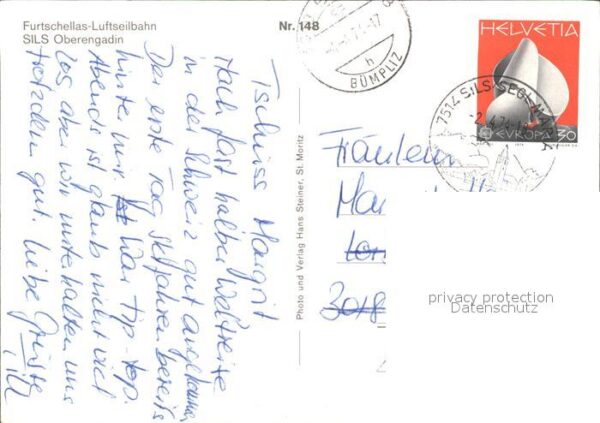 Furtschellas-Luftseilbahn
SILS Oberengadin
Nr. 148
Tschüss Margrit
Nach fast halber Weltreise
in der Schweiz gut angekommen
Der erste Tag Skifahren bereits
hinter mir War tip top.
Abends ist glaub nicht viel
los aber wir unterhalten uns
trotzdem gut. Liebe Grüsse
Photo und Verlag Hans Steiner, St. Moritz
BÜMPLIZ
HELVETIA
EUROPA 30
7514 SILS-SEGL
-2.4.7
Fräulein
3018
privacy protection
Datenschutz